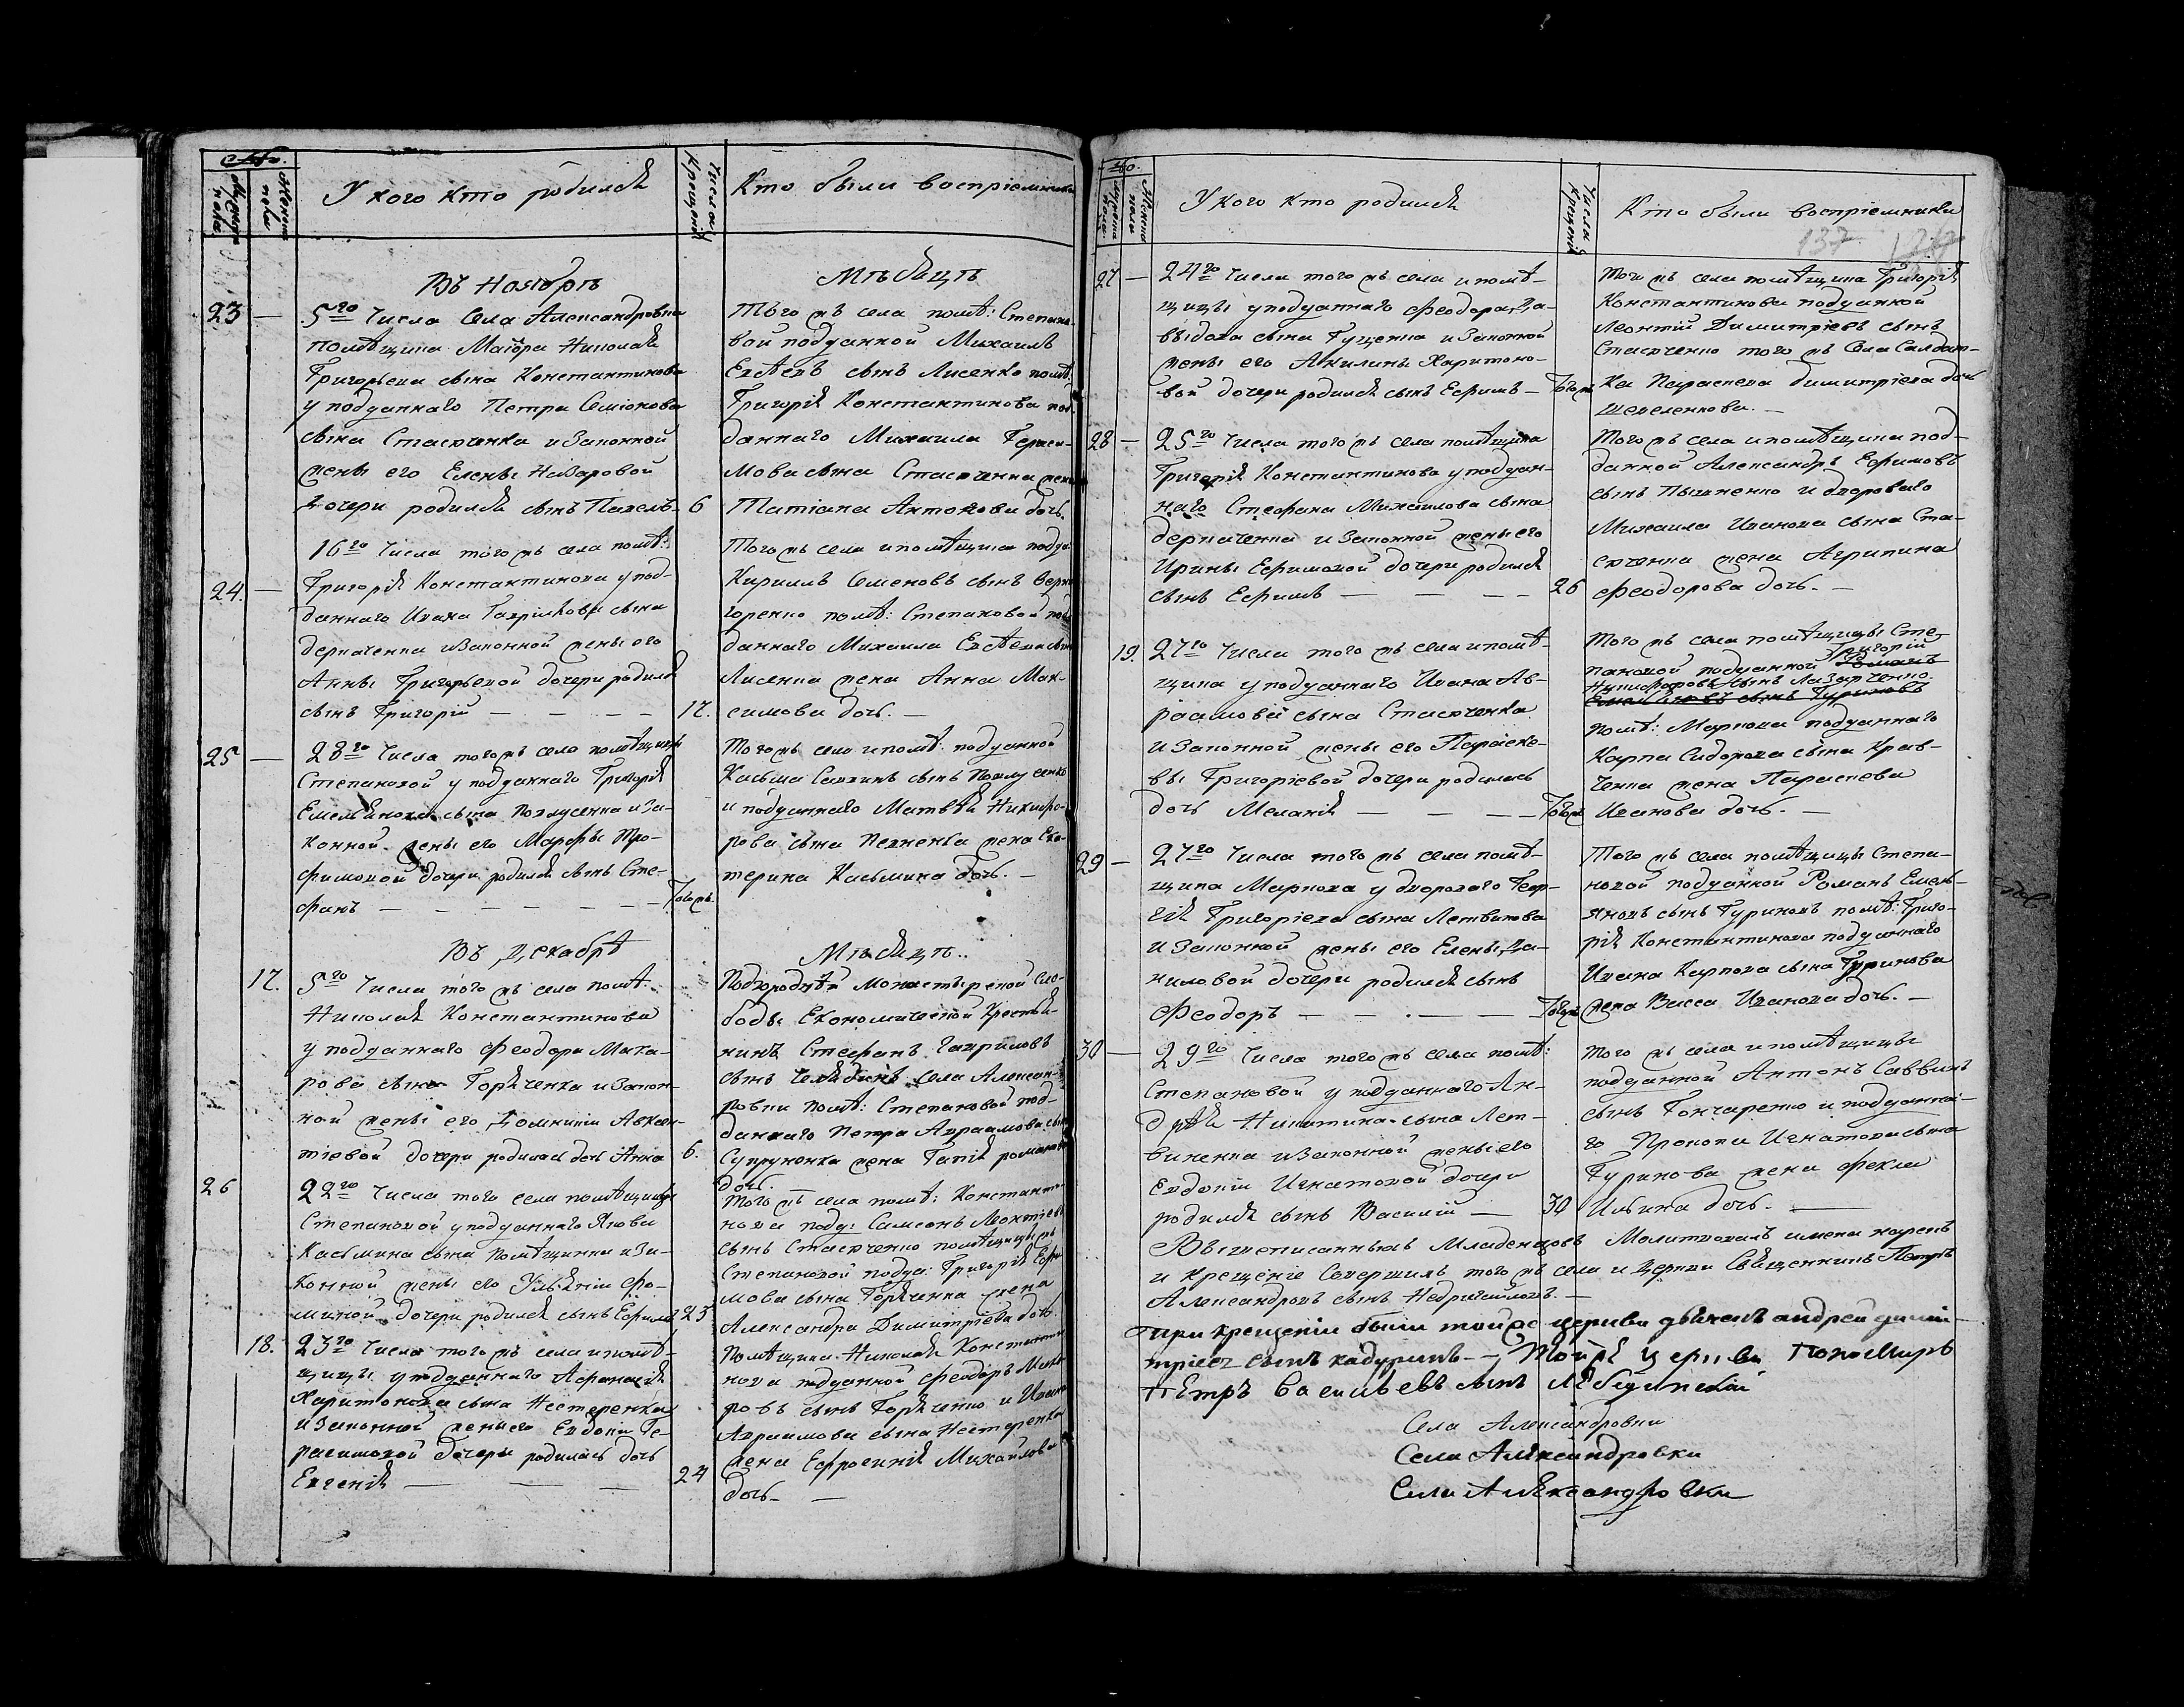 У кого кто родился
Числа Крещенія
Кто были воспріемники
Въ Ноябрѣ
Мѣсяцѣ
23 — 5го Числа Села Александровки
помѣщика Маіора Николая
Григорьева сына Константинова
у подданнаго Петра Семіонова
сына Стасюченка и Законной
жены его Елены Назаровой
дочери родился сынъ Павелъ 6
Того жъ села помѣ: Степано-
вой подданной Михаилъ
Евсѣевъ сынъ Лисенко помѣ:
Григорія Константинова под-
даннаго Михаила Гераси-
мова сына Стасюченка жена
Татіана Антонова дочь.
16го Числа того жъ села помѣ:
24. — Григорія Константинова у под-
даннаго Ивана Гаврилова сына
деркаченка и Законной жены его
Анны Григорьевой дочери родился
сынъ Григорій — — — — 17.
Того жъ села и помѣщика подда
Кириллъ Семеновъ сынъ
горенко помѣ: Степановой под
даннаго Михаила Евсѣева сына
Лисенка жена Анна Мак-
симова дочь. —
25 — 28го Числа того жъ села помѣщицы
Степановой у подданнаго Григорія
Емельянова сына и За-
конной жены его Марфы Тро-
фимовой дочери родился сынъ Сте-
фанъ — — — — — — Того жъ.
Того жъ села и помѣ: подданной
Касьма Саввинъ сынъ
и подданнаго Матвѣя Никифо-
рова сына жена Ека-
терина Касьмина дочь. —
Въ Декабрѣ
Мѣсяцѣ..
17. 5го Числа того жъ села помѣ:
Николая Константинова
у подданнаго Феодора Мака-
рова сына Горяченка и Закон-
ной жены его Домникіи Авксен-
тіевой дочери родилась дочь Анна 6.
Подгородней Монастырской Сло-
боды Економической Крестья-
нинъ Стефанъ Гавриловъ
сынъ села Алексан-
ровки помѣ: Степановой под-
даннаго Петра Авраамова сына
Супруненка жена Гапія романова
дочь.
26 22го Числа того села помѣщицы
Степановой у подданнаго Якова
Касьмина сына и За-
конной жены его Ульяніи Фо-
миной дочери родился сынъ Ефимъ 23
Того жъ села помѣ: Константи-
нова подд: Самсонъ Леонтіевъ
сынъ Стасюченко помѣщицы
Степановой подда: Григорія Ефи-
мова сына Горяченка жена
Александра Димитріева дочь.
18. 23го Числа того жъ села и помѣ-
щицы у подданнаго Афанасія
Харитонова сына Нестеренка
и Законной жены его Евдокіи Ге-
расимовой дочери родилась дочь
Евгенія — — — 24
Помѣщика Николая Константи-
нова подданной Феодоръ Мака-
ровъ сынъ Горяченко и Ивана
Авраамова сына Нестеренка
жена Ефросинія Михайлова
дочь —
У кого кто родился
Числа Крещенія
Кто были воспріемники
137
27 — 24го Числа того жъ села и помѣ-
щицы у подданнаго Феодора Да-
выдова сына Гуценка и Законной
жены его Акилины Харитоно-
вой дочери родился сынъ Ефимъ — Того жъ
Того жъ села помѣщика Григорія
Константинова подданной
Леонтій Димитріевъ сынъ
Стасюченко того жъ Села Салдат-
ка Параскева димитріева дочь
Шевеленкова. —
28 — 25го Числа того жъ села помѣщика
Григорія Константинова у поддан-
наго Стефана Михаилова сына
деркаченка и Законной жены его
Ирины Ефимовой дочери родился
сынъ Ефимъ — — — — 26
Того жъ села и помѣщика под-
данной Александръ Ефимовъ
сынъ и двороваго
Михаила Иванова сына Ста-
сюченка жена Агрипина
Феодорова дочь. —
19. 27го Числа того жъ села и помѣ-
щика у подданнаго Ивана Ав-
раамовой сына Стасюченка
и Законной жены его Параске-
вы Григоріевой дочери родилась
дочь Меланія — — — Того жъ
Того жъ села помѣщицы Сте-
пановой подданной Романъ Григорій
Никифоровъ сынъ Лазарченко
Емельяновъ сынъ Гуриновъ
помѣ: Маркова подданнаго
Карпа Сидорова сына Крав-
ченка жена Параскева
Иванова дочь. —
29 — 27го Числа того жъ села помѣ-
щика Маркова у двороваго Геор-
гія Григоріева сына Летвинова
и Законной жены его Елены Да-
ниловой дочери родился сынъ
Феодоръ — — — — Того жъ
Того жъ села помѣщицы Степа-
новой подданной Романъ Емель-
яновъ сынъ Гуриновъ помѣ: Григо-
рія Константинова подданнаго
Ивана Карпова сына Гуринова
жена Васса Иванова дочь. —
30 — 29го Числа того жъ села помѣ:
Степановой у подданнаго Ан-
дрѣя Никитина сына Лет-
виненка и Законной жены его
Евдокіи Игнатовой дочери
родился сынъ Василій — 30
Того жъ села и помѣщицы
подданной Антонъ Саввинъ
сынъ Гончаренко и подданна-
го Прокопа Игнатова сына
Гуринова жена Фекла
Ильина дочь. —
Вышеписанныхъ Младенцовъ Молитвовалъ имена нарекъ
и крещеніе Совершилъ того жъ села и Церкви Священникъ Петръ
Александровъ сынъ Недригайловъ. —
При крещеніи были той же церкви дьяконъ андрей дими-
тріевъ сынъ кадуринъ — Той же церкви Пономарь
Петръ Васильевъ сынъ Лебединскій
Села Александровки
Села Александровки
Села Александровки